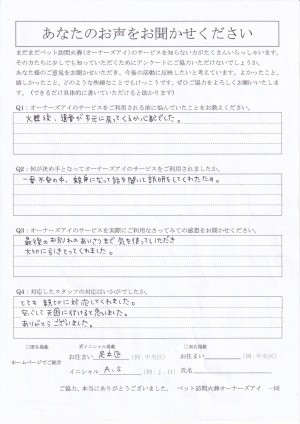 あなたのお声をお聞かせください
まだまだペット訪問火葬(オーナーズアイ)のサービスを知らない方がたくさんいらっしゃいます。
そのうちの方に少しでも知っていただくためにアンケートにご協力いただけないでしょうか。
あなた様のご意見をお聞かせいただき、今後の活動に反映したいと考えています。よかったこと、
嬉しかったこと、どのような些細なことでもけっこうです。ぜひご協力をよろしくお願いいたします。
(できるだけ具体的に書いていただけると助かります)
Q1:オーナーズアイのサービスをご利用される前に悩んでいたことをお教えください。
火葬後、遺骨が手元に戻ってくるか心配でした。
Q2:何が決め手となってオーナーズアイのサービスをご利用されましたか。
一番不安の中、親身になって話を聞いて説明をしてくれたため。
Q3:オーナーズアイのサービスを実際にご利用なさってみての感想をお聞かせください。
最後のお別れのあいさつまで気を使っていただき
大切に引きとってくれました。
Q4:対応したスタッフの対応はいかがでしたか。
とても親切に対応してくれました。
安心して天国に行けると思いました。
ありがとうございました。
□匿名掲載
☑イニシャル掲載
□実名掲載
ホームページでご紹介
お住まい 足立区 (例:中央区)
お住まい (例:中央区)
イニシャル A.S (例:J、H)
氏名
ご協力、本当にありがとうございました。 ペット訪問火葬オーナーズアイ 一同